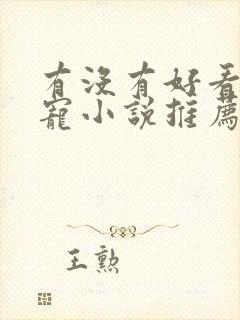 有没有好看
寵小說推薦
王勲